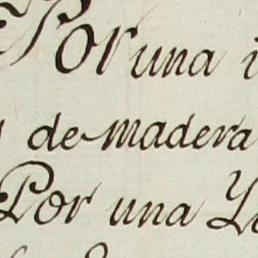 Por una
de madera
Por una